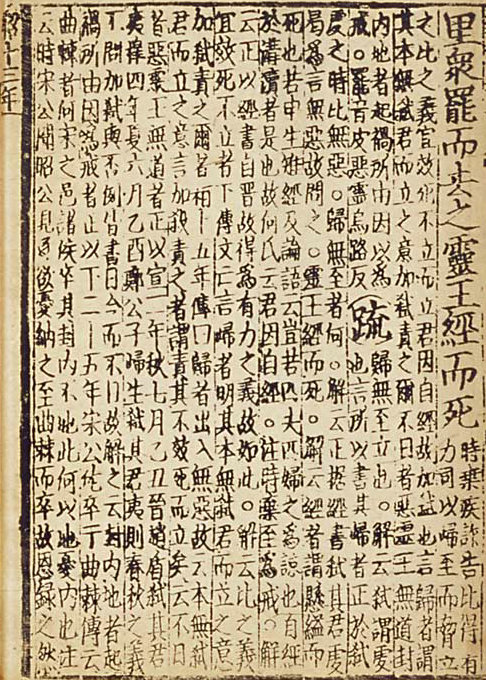 里衆罷而去之靈王經而死時棄疾詐告比得
力可以歸至而脅立
之比之義宜效死不立而立君因自經故加弒也言歸者謂
其本無弒君而立之意加弒責之爾不日者惡靈王無道封
內地者起禍所由因以為疏歸無至立也○解云弒謂處
戒○罷音皮惡靈烏路反也言所以書其歸者正於弒
虔之時比無惡○歸無至者何○解云正據經書弒其君虔
曷為言無惡故問之○靈王經而死○解云經者謂縣縊而
死也若申生雉經及論語云豈若匹夫匹婦之為諒也自經
於溝瀆者是也故何氏云君因自經○注時棄至為戒○解
云正以經書自晉故得為有力之義故如此○解云比之義
宜效死不立者下傳文云言歸者明其本無弒君而立之意
加弒責之爾者桓十五年傳曰歸者出入無惡故云本無弒
君而立之意言加弒責之者謂責其不效死而立矣云不日
者惡靈王無道者正以宣二年秋七月乙丑晉趙盾弒其君
夷皋四年夏六月乙酉鄭公子歸生弒其君夷則春秋之義
問加弒與否例皆書日今而不日故解之云封內地者起
禍所由因為戒者正以下二十五年宋公佐卒于曲棘傳云
曲棘者何宋之邑諸侯卒其封內不地此何以地憂內也注
云時宋公聞昭公見逐欲憂納之至曲棘而卒故恩錄之然
昭十三年